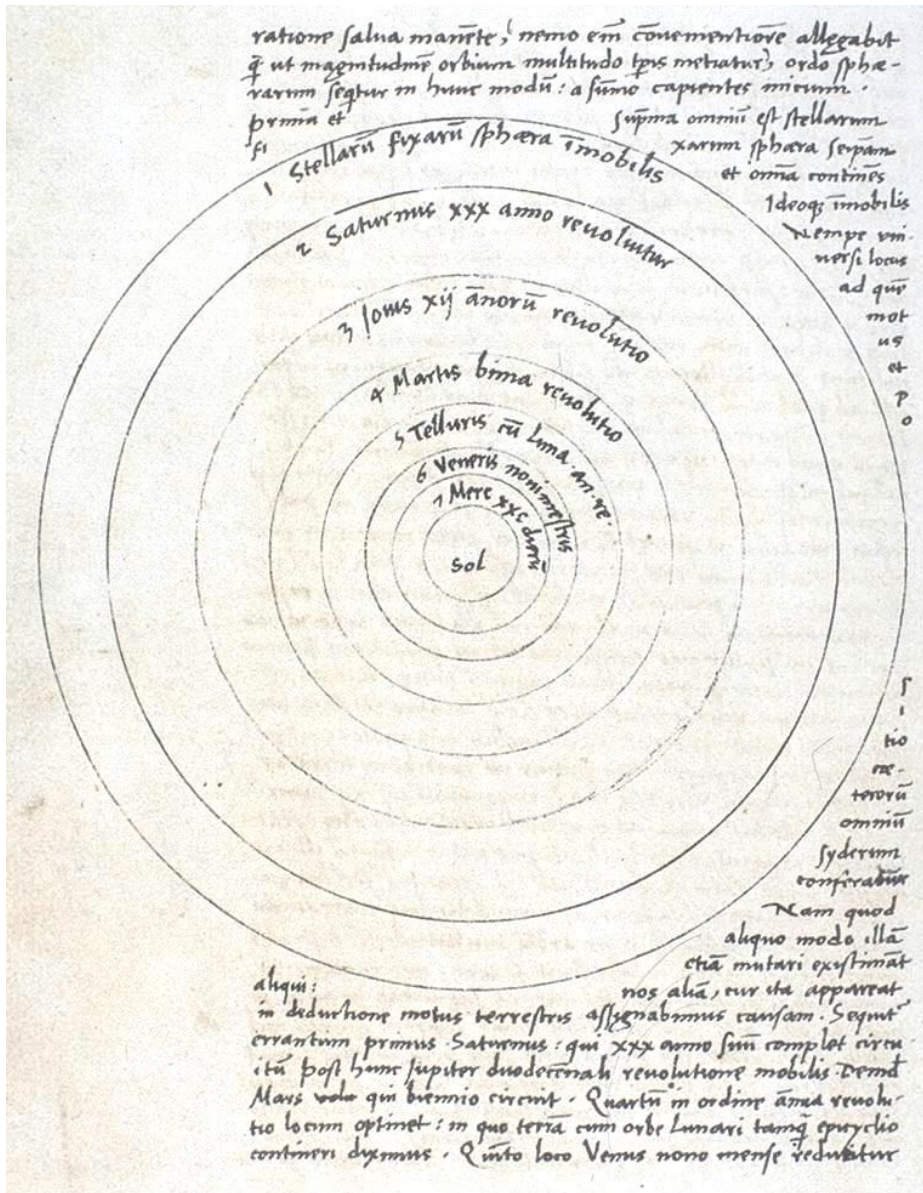 ratione salva manēte, nemo em̄ cōvenientiorē allegabit
q̄ ut magnitudinē orbium multitudo tp̄is metiatur, ordo sphæ-
rarum seqtur in hunc modū: a sūmo capientes inicium.
prima et sup̄ma omniū est stellarum
fi xarum sphæra seipam
et omīa continēs
Ideoqȝ īmobilis
Nempe uni-
versi locus
ad quē
mot
us
et
p
o
1 Stellarū fixarū sphæra īmobilis
2 Saturnus xxx anno revoluitur
3 Jovis xij ānorū revolutio
4 Martis bima revolutio
5 Telluris cū Luna an. re.
6 Veneris nonimestris
7 Merc xxc dierū
sol
s
i
tio
cæ-
terorū
omniū
syderum
conferatur
Nam quod
aliquo modo illā
etiā mutari existimāt
aliqui: nos aliā, cur ita appareat
in deductione motus terrestris assignabimus causam. Sequit
errantium primus Saturnus: qui xxx anno suū complet circu-
itū post hunc Jupiter duodecēnali revolutione mobilis. Deīd
Mars qui biennio circuit. Quartū in ordine āñua revolu-
tio locum optinet: in quo terrā cum orbe Lunari tamq̄ epicyclio
contineri diximus. Quīto loco Venus nono mense reducitur